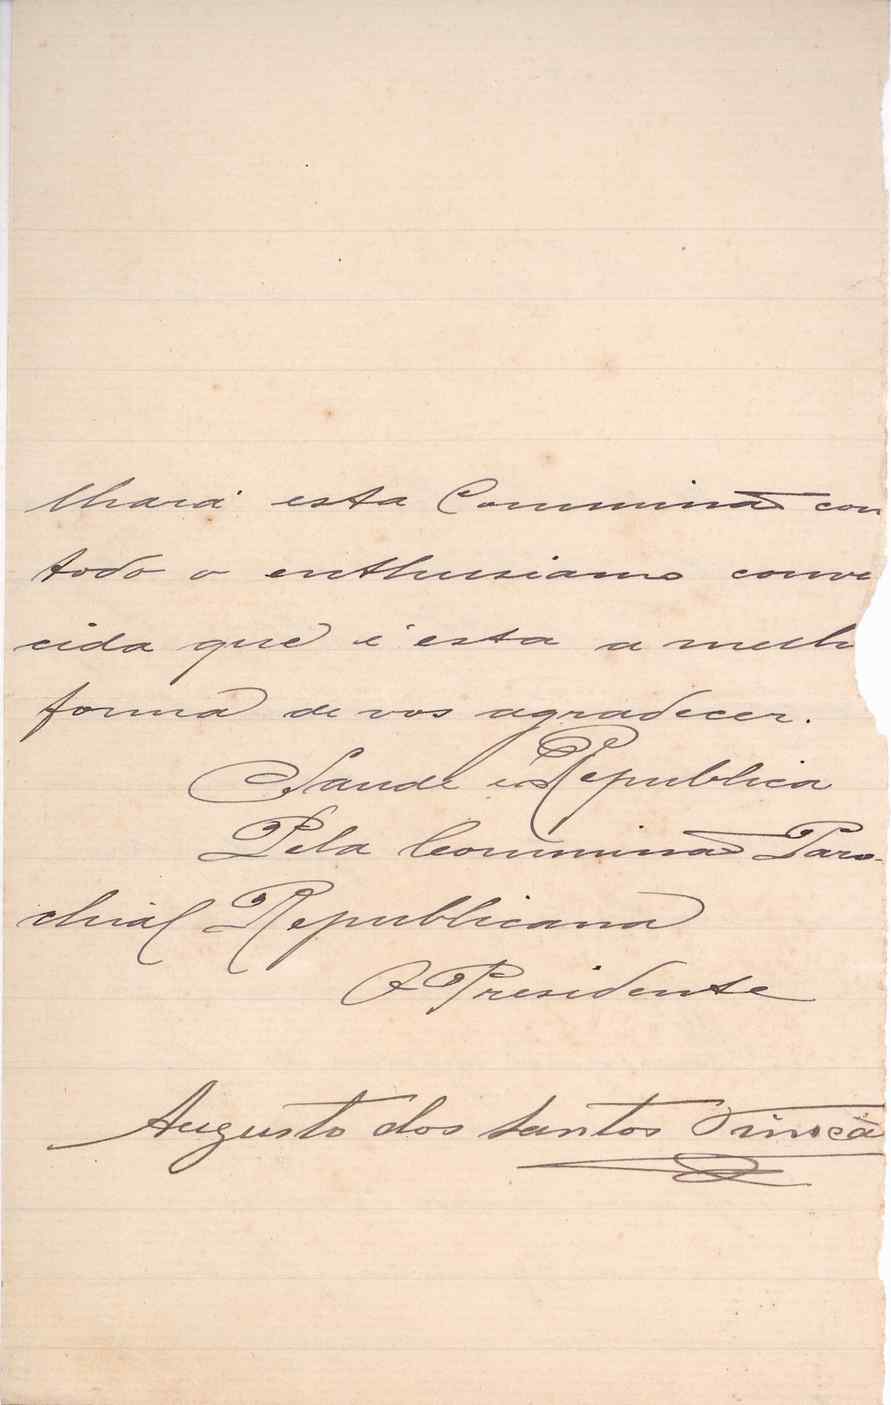 lhará esta Commissão con
todo o enthusiasmo conve
cida que é esta a melh
forma de vos agradecer.
Saude e Republica
Pela Commissão Paro-
chial Republicana
O Presidente
Augusto dos Santos